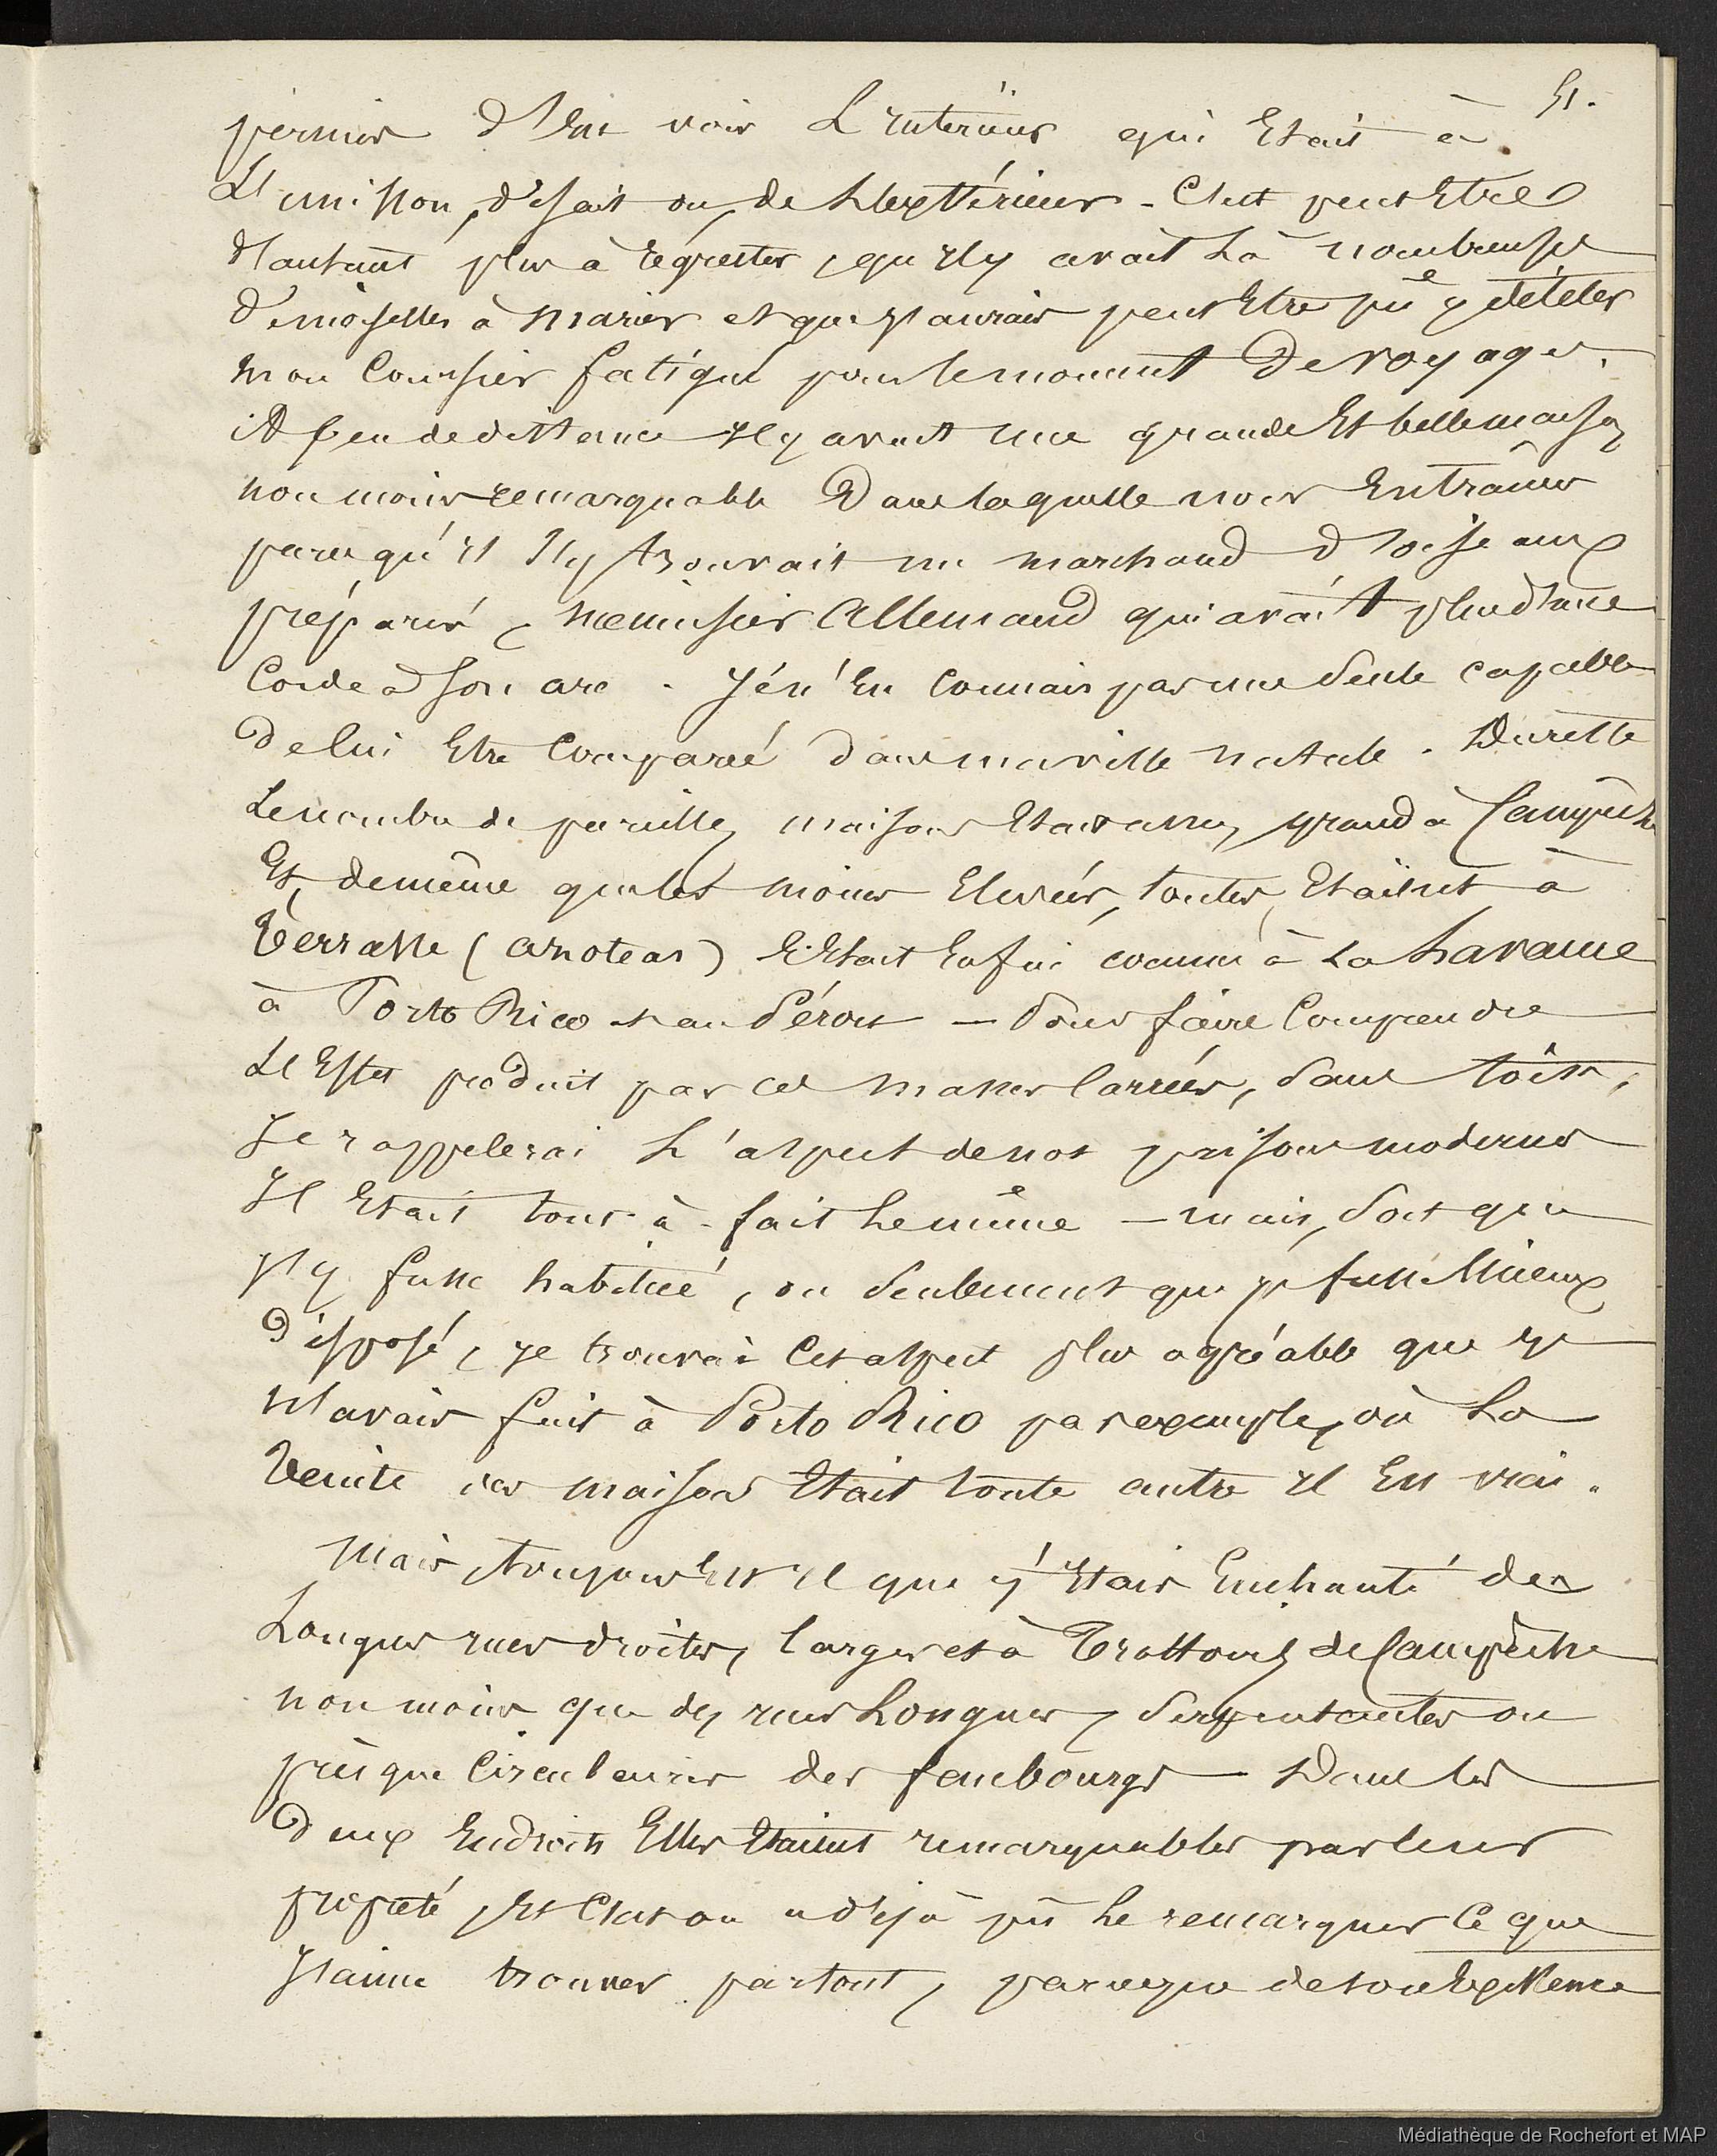 51.
permis d'En voir L'interïeur qui Etait à
L'unisson, disait on, de L'exttérieur - C'est peut Etre
d'autant plus à regretter, qu'il y avait Là nombreuses
demoiselles à marier et que j'aurais peut Etre pû y dételer
mon Coursier fatigué pour le moment De voyager.
A peu de distance il y avait une grande Et belle maison
non moins remarquable Dans laquelle nous Entrâmes
parce qu'il s'y trouvait un marchand d'oiseaux
préparés, menuisier Allemand qui avait plus d'une
Corde à son arc. Je n'En Connais pas une seule capable
De lui Etre Comparée dans ma ville natale. Du reste
Le nombre de pareilles maisons Etait assez grand à Campêche
Et, de même que les moins Elevées, toutes, Etaient à
Terrasse (azoteas) C'Etait Enfin comme à La havane
à Porto Rico et au Pérou — Pour faire Comprendre
L'Effet produit par ces masses Carrées, sans toits,
Je rappelerai L'aspect de nos prisons modernes
Il Etait tout-à-fait Le même — mais, soit que
j'y fusse habitué, ou seulement que je fusse Mieux
disposé, je trouvai Cet aspect plus agréable que je
n'avais fait à Porto Rico par exemple, où La
Teinte des maisons Etait toute autre il Est vrai.
Mais toujours Est il que j'Etais Enchanté des
Longues rues droites, larges et à Trottoirs de Campêche
non moins que des rues Longues, serpentantes ou
presque Circulaires des faubourgs — Dans les
deux Endroits Elles Etaient remarquables par leur
propreté, Et C'est on a déjà pû Le remarquer Ce que
J'aime trouver partout, parceque de son Existence
Médiathèque de Rochefort et MAP